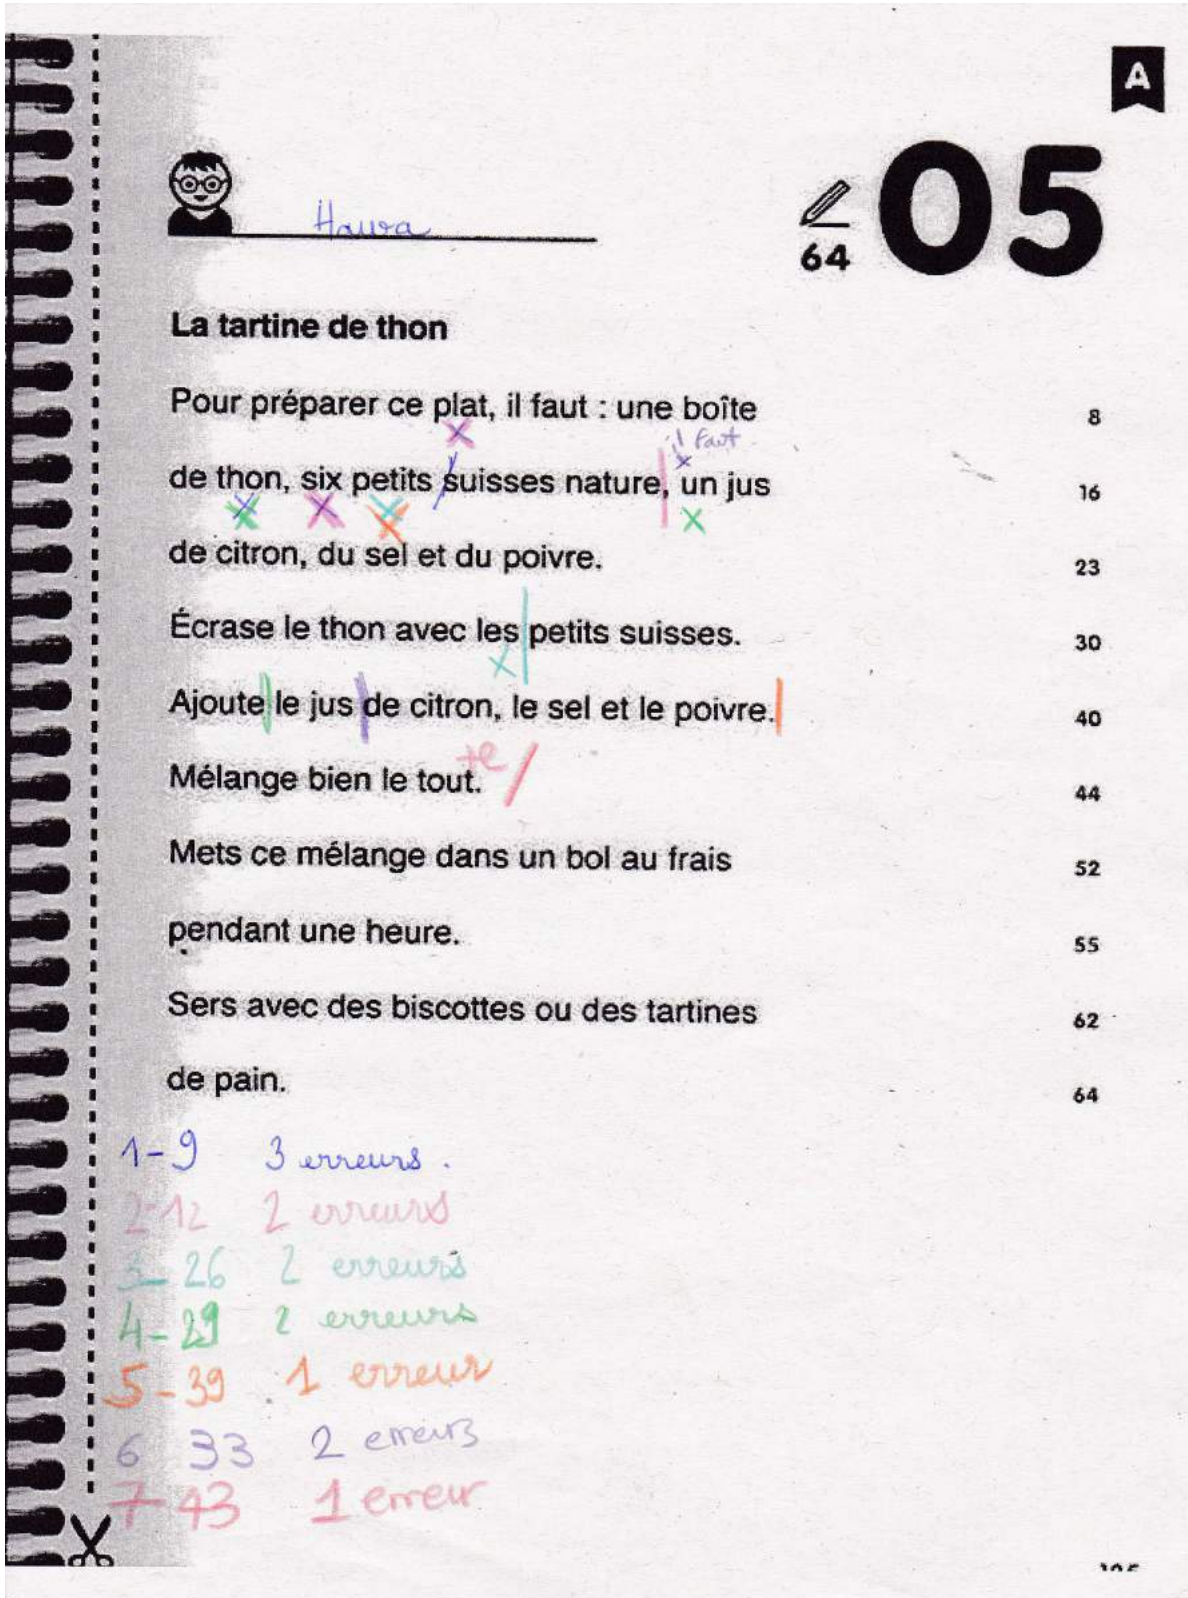 A
Haura
64
05
La tartine de thon
Pour préparer ce plat, il faut : une boîte 8
il faut
de thon, six petits suisses nature, un jus 16
de citron, du sel et du poivre. 23
Écrase le thon avec les petits suisses. 30
Ajoute le jus de citron, le sel et le poivre. 40
+e
Mélange bien le tout. 44
Mets ce mélange dans un bol au frais 52
pendant une heure. 55
Sers avec des biscottes ou des tartines 62
de pain. 64
1-9 3 erreurs.
2-12 2 erreurs
3-26 2 erreurs
4-29 2 erreurs
5-39 1 erreur
6 33 2 erreurs
7-43 1 erreur